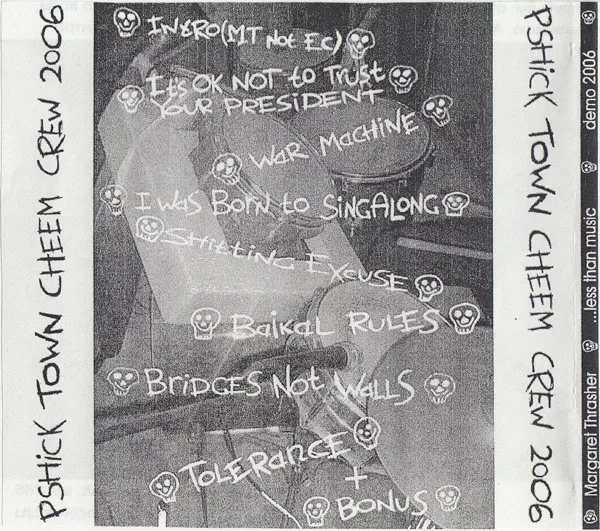 PSHiCK TOWN CHEEM CREW 2006
INtRO (MT Not Ec)
It's OK NOT to Trust
YOUR PRESIDENT
WAR MACHiNE
I WAS BORN to SiNGALONG
SHittiNG EXCUSE
BAiKAL RULES
BRiDGES Not WALLS
TOLERANCE
+
BONUS
PSHiCK TOWN CHEEM CREW 2006
Margaret Thrasher ...less than music demo 2006